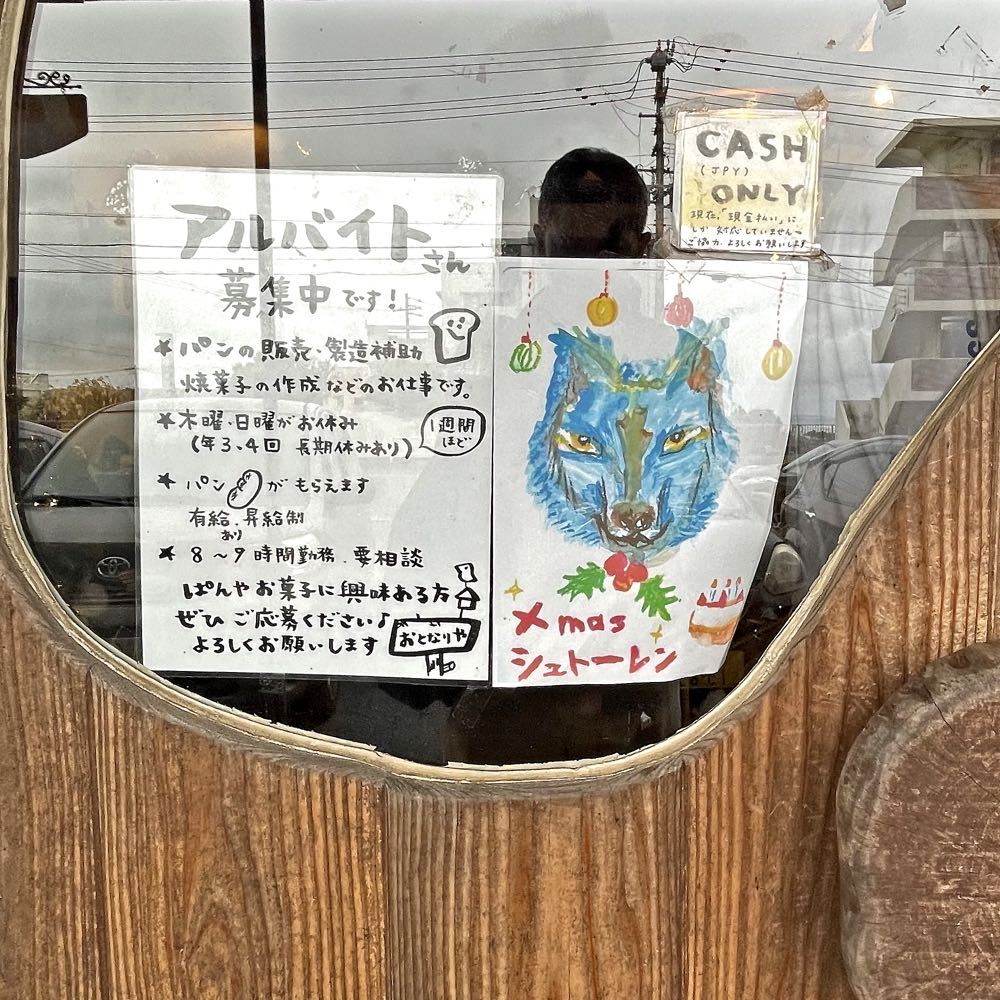 アルバイトさん
募集中です!
★ パンの販売・製造補助
焼菓子の作成などのお仕事です。
★ 木曜・日曜がお休み
(年3、4回 長期休みあり)
1週間
ほど
★ パンがもらえます
有給、昇給制
あり
★ 8〜9時間勤務、要相談
ぱんやお菓子に興味ある方
ぜひご応募ください♪
よろしくお願いします
おとなりや
CASH
(JPY)
ONLY
現在、「現金払い」に
しか対応していません。
ご協力、よろしくお願いします
Xmas
シュトーレン